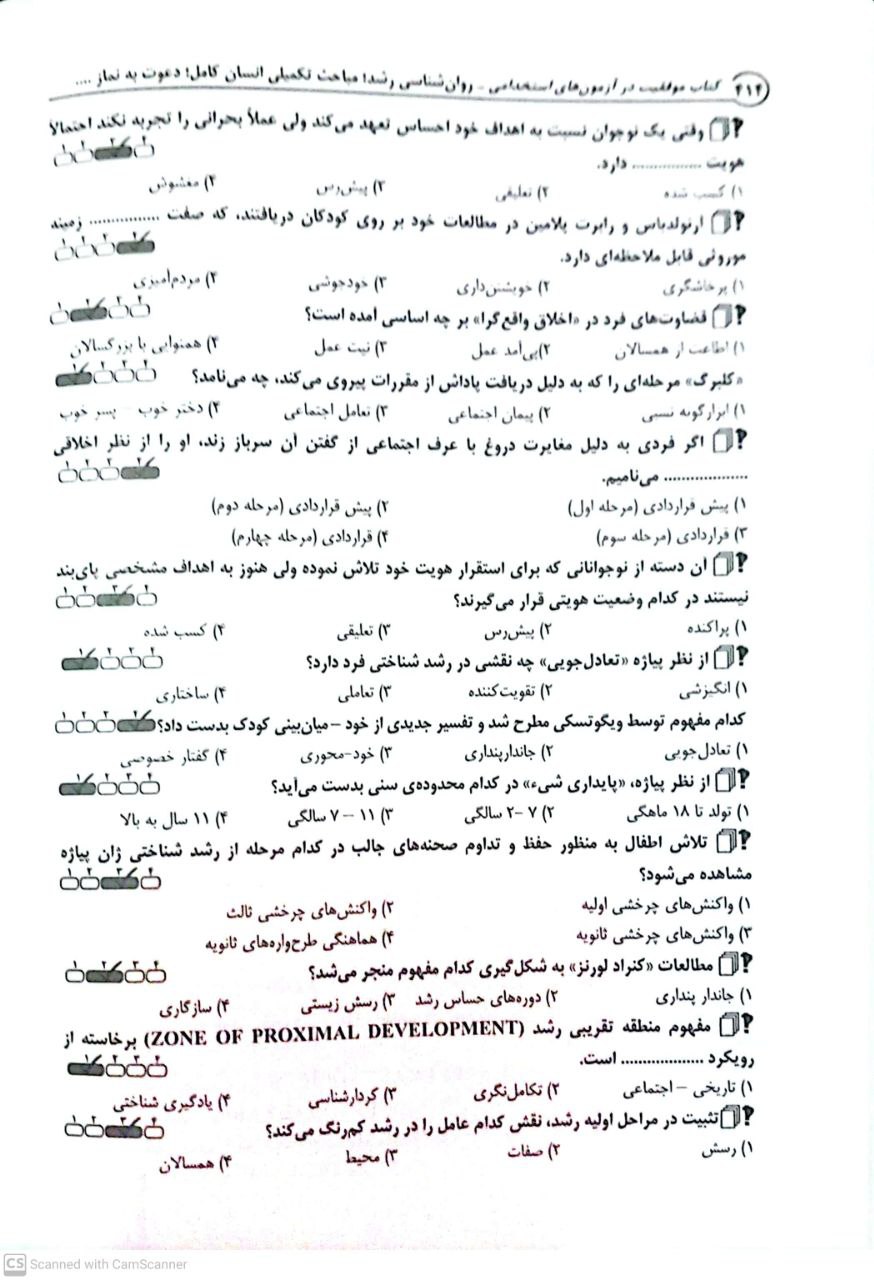 ۴۱۴ کتاب موفقیت در آزمون‌های استخدامی - روان‌شناسی رشد؛ مباحث تکمیلی انسان کامل؛ دعوت به نماز ....
وقتی یک نوجوان نسبت به اهداف خود احساس تعهد می‌کند ولی عملاً بحرانی را تجربه نکند احتمالاً
هویت ............... دارد.
۱ ۲ ۳ ۴
۱) کسب شده ۲) تعلیقی ۳) پیش‌رس ۴) مغشوش
ارنولدباس و رابرت پلامین در مطالعات خود بر روی کودکان دریافتند، که صفت ............... زمینه
موروثی قابل ملاحظه‌ای دارد.
۱ ۲ ۳ ۴
۱) پرخاشگری ۲) خویشتن‌داری ۳) خودجوشی ۴) مردم‌آمیزی
قضاوت‌های فرد در «اخلاق واقع‌گرا» بر چه اساسی آمده است؟ ۱ ۲ ۳ ۴
۱) اطاعت از همسالان ۲) پی‌آمد عمل ۳) نیت عمل ۴) همنوایی با بزرگسالان
«کلبرگ» مرحله‌ای را که به دلیل دریافت پاداش از مقررات پیروی می‌کند، چه می‌نامد؟ ۱ ۲ ۳ ۴
۱) ابزارگونه نسبی ۲) پیمان اجتماعی ۳) تعامل اجتماعی ۴) دختر خوب - پسر خوب
اگر فردی به دلیل مغایرت دروغ با عرف اجتماعی از گفتن آن سرباز زند، او را از نظر اخلاقی
................... می‌نامیم.
۱ ۲ ۳ ۴
۱) پیش قراردادی (مرحله اول) ۲) پیش قراردادی (مرحله دوم)
۳) قراردادی (مرحله سوم) ۴) قراردادی (مرحله چهارم)
آن دسته از نوجوانانی که برای استقرار هویت خود تلاش نموده ولی هنوز به اهداف مشخصی پای‌بند
نیستند در کدام وضعیت هویتی قرار می‌گیرند؟ ۱ ۲ ۳ ۴
۱) پراکنده ۲) پیش‌رس ۳) تعلیقی ۴) کسب شده
از نظر پیاژه «تعادل‌جویی» چه نقشی در رشد شناختی فرد دارد؟ ۱ ۲ ۳ ۴
۱) انگیزشی ۲) تقویت‌کننده ۳) تعاملی ۴) ساختاری
کدام مفهوم توسط ویگوتسکی مطرح شد و تفسیر جدیدی از خود -میان‌بینی کودک بدست داد؟ ۱ ۲ ۳ ۴
۱) تعادل‌جویی ۲) جاندارپنداری ۳) خود-محوری ۴) گفتار خصوصی
از نظر پیاژه، «پایداری شیء» در کدام محدوده‌ی سنی بدست می‌آید؟ ۱ ۲ ۳ ۴
۱) تولد تا ۱۸ ماهگی ۲) ۷ -۲ سالگی ۳) ۱۱ - ۷ سالگی ۴) ۱۱ سال به بالا
تلاش اطفال به منظور حفظ و تداوم صحنه‌های جالب در کدام مرحله از رشد شناختی ژان پیاژه
مشاهده می‌شود؟ ۱ ۲ ۳ ۴
۱) واکنش‌های چرخشی اولیه ۲) واکنش‌های چرخشی ثالث
۳) واکنش‌های چرخشی ثانویه ۴) هماهنگی طرح‌واره‌های ثانویه
مطالعات «کنراد لورنز» به شکل‌گیری کدام مفهوم منجر می‌شد؟ ۱ ۲ ۳ ۴
۱) جاندار پنداری ۲) دوره‌های حساس رشد ۳) رسش زیستی ۴) سازگاری
مفهوم منطقه تقریبی رشد (ZONE OF PROXIMAL DEVELOPMENT) برخاسته از
رویکرد .................. است. ۱ ۲ ۳ ۴
۱) تاریخی - اجتماعی ۲) تکامل‌نگری ۳) کردارشناسی ۴) یادگیری شناختی
تثبیت در مراحل اولیه رشد، نقش کدام عامل را در رشد کم‌رنگ می‌کند؟ ۱ ۲ ۳ ۴
۱) رسش ۲) صفات ۳) محیط ۴) همسالان
CS Scanned with CamScanner